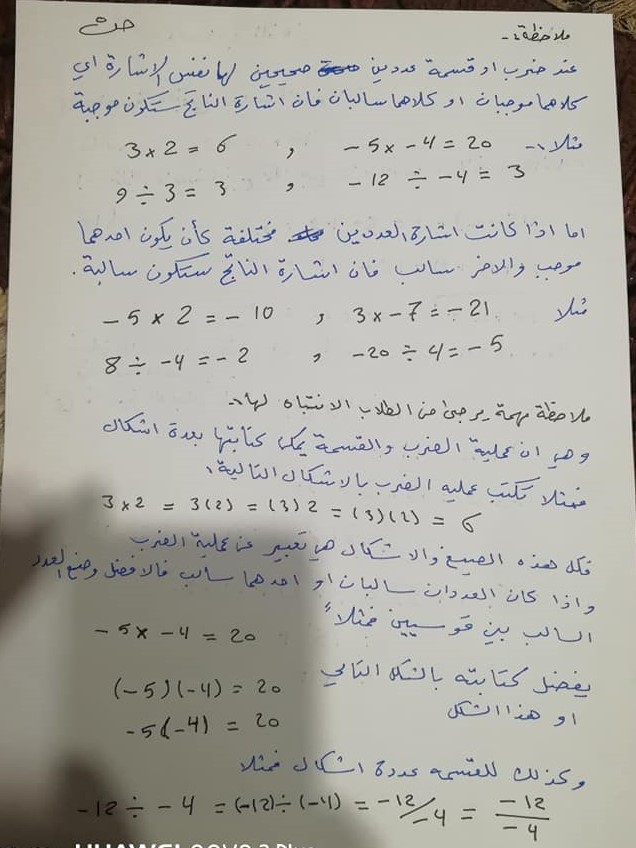 حث
ملاحظة :-
عند ضرب او قسمة عددين صحيحين لها نفس الاشارة اي
كلاهما موجبان او كلاهما سالبان فان اشارة الناتج ستكون موجبة
مثلا :- 3 x 2 = 6 , - 5 x - 4 = 20
9 ÷ 3 = 3 , - 12 ÷ - 4 = 3
اما اذا كانت اشارة العددين مختلفة كأن يكون احدهما
موجب والاخر سالب فان اشارة الناتج ستكون سالبة .
مثلا - 5 x 2 = - 10 , 3 x - 7 = - 21
8 ÷ - 4 = - 2 , - 20 ÷ 4 = - 5
ملاحظة مهمة يرجى من الطلاب الانتباه لها :-
وهي ان عملية الضرب والقسمة يمكن كتابتها بعدة اشكال
فمثلا تكتب عمليه الضرب بالاشكال التالية :
3 x 2 = 3(2) = (3) 2 = (3)(2) = 6
فكل هذه الصيغ والاشكال هي تعبير عن عملية الضرب
واذا كان العددان سالبان او احدهما سالب فالافضل وضع العدد
السالب بين قوسيين فمثلاً
- 5 x - 4 = 20
يفضل كتابته بالشكل التالي (-5)(-4) = 20
او هذا الشكل -5(-4) = 20
وكذلك للقسمه عدة اشكال فمثلا
-12 ÷ - 4 = (-12) ÷ (-4) = -12/-4 = -12/-4